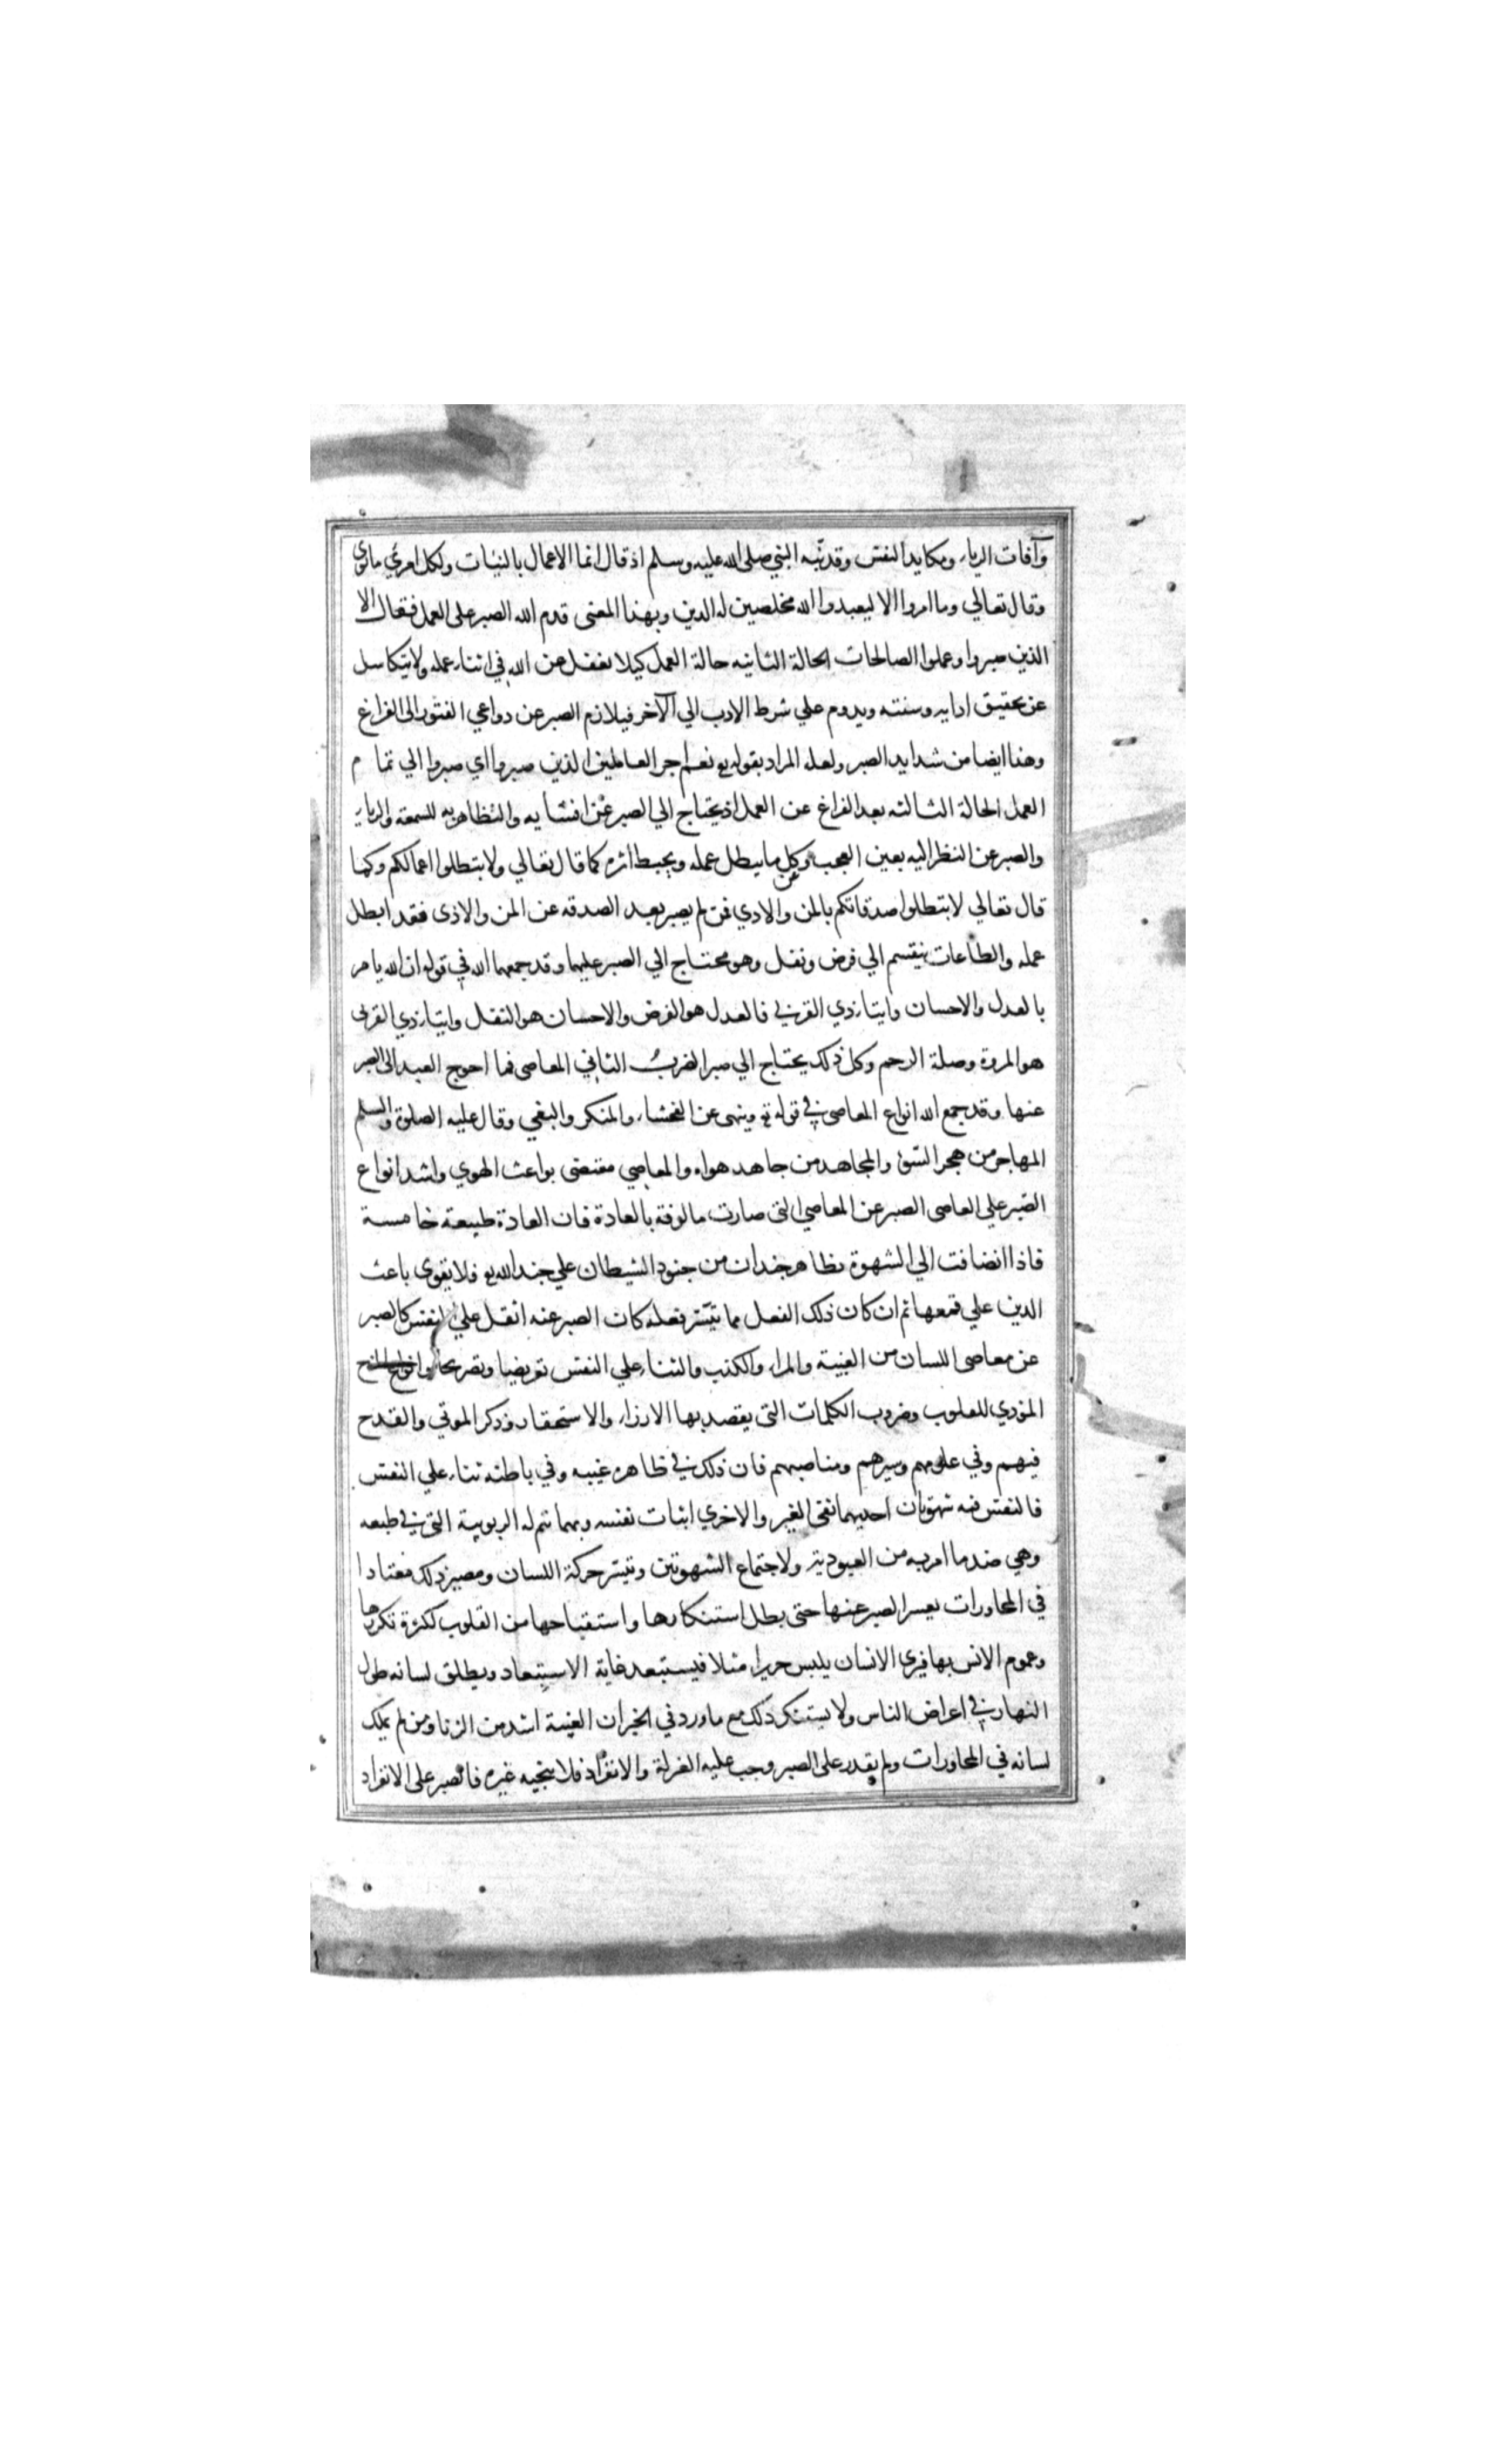 وآفات الرياء ومكايد النفس وقد نبّه النبي صلى الله عليه وسلم اذ قال انما الاعمال بالنيّات ولكل امرئ ما نوى
وقال تعالي وما امروا الا ليعبدوا الله مخلصين له الدين وبهذا المعنى قدم الله الصبر على العمل فقال الا
الذين صبروا وعملوا الصالحات الحالة الثانيه حالة العمل كيلا يغفل عن الله في اثناء عمله ولا يتكاسل
عن تحقيق ادابه وسننه ويدوم علي شرط الادب الي الآخر فيلازم الصبر عن دواعي الفتور الى الفراغ
وهذا ايضا من شدايد الصبر ولعله المراد بقوله تع نعم اجر العاملين الذين صبروا اي صبروا الي تمام
العمل الحالة الثالثه بعد الفراغ عن العمل اذ يحتاج الي الصبر عن افشايه والتظاهر به للسمعة والرياء
والصبر عن النظر اليه بعين العجب وعن كل ما يبطل عمله ويحبط اثره كما قال تعالي ولا تبطلوا اعمالكم وكما
قال تعالي لا تبطلوا صدقاتكم بالمن والاذي فمن لم يصبر بعد الصدقه عن المن والاذى فقد ابطل
عمله والطاعات ينقسم الي فرض ونفل وهو محتاج الي الصبر عليهما وقد جمعهما الله في قوله ان الله يامر
بالعدل والاحسان وايتاء ذي القربي فالعدل هو الفرض والاحسان هو النفل وايتاء ذي القربى
هو المروة وصلة الرحم وكل ذلك يحتاج الي صبر الضرب الثاني المعاصى فما احوج العبد الى الصبر
عنها وقد جمع الله انواع المعاصى في قوله تع وينهى عن الفحشاء والمنكر والبغي وقال عليه الصلوة والسلم
المهاجر من هجر السّوء والمجاهد من جاهد هواه والمعاصي مقتضى بواعث الهوي واشد انواع
الصّبر علي العاصى الصبر عن المعاصي التى صارت مالوفة بالعادة فان العادة طبيعة خامسة
فاذا انضافت الي الشهوة تظاهر جندان من جنود الشيطان علي جند الله تع فلا يقوى باعث
الدين علي قمعها ثم ان كان ذلك الفعل مما تيسّر فعله كان الصبر عنه اثقل علي النفس كالصبر
عن معاصى اللسان من الغيبة والمراء والكذب والثناء علي النفس تعريضا وتصريحا وانواع المزح
المؤذي للقلوب وضروب الكلمات التى يقصد بها الازراء والاستحقار وذكر الموتي والقدح
فيهم وفي علومهم وسيرهم ومناصبهم فان ذلك في ظاهره غيبه وفي باطنه ثناء علي النفس
فالنفس فيه شهوتان احديهما نفى الغير والاخري اثبات نفسه وبهما تتم له الربوبية التى في طبعه
وهي ضد ما امر به من العبودية ولاجتماع الشهوتين وتيسّر حركة اللسان ومصير ذلك معتادا
في المحاورات يعسر الصبر عنها حتى بطل استنكارها واستقباحها من القلوب لكثرة تكررها
وعموم الانس بها فيرى الانسان يلبس حريرا مثلا فيستبعد غاية الاستبعاد ويطلق لسانه طول
النهار في اعراض الناس ولا يستنكر ذلك مع ما ورد في الخبر ان الغيبة اشد من الزنا ومن لم يملك
لسانه في المحاورات ولم يقدر على الصبر وجب عليه العزلة والانفراد فلا ينجيه غيره فالصبر على الانفراد